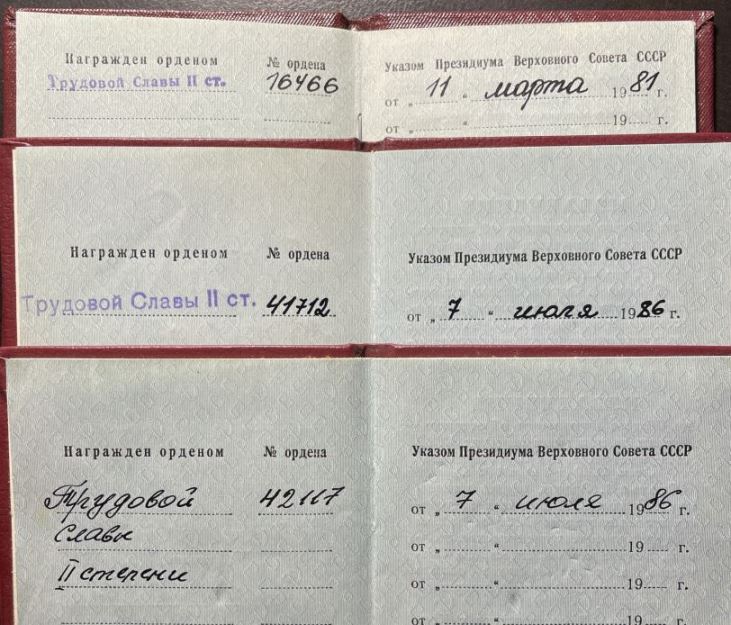 Награжден орденом № ордена Указом Президиума Верховного Совета СССР
Трудовой Славы II ст. 16466 от „ 11 “ марта 1981 г.
от „ “ 19 г.
Награжден орденом № ордена Указом Президиума Верховного Совета СССР
Трудовой Славы II ст. 41712 от „ 7 “ июля 1986 г.
Награжден орденом № ордена Указом Президиума Верховного Совета СССР
Трудовой 42117 от „ 7 “ июля 1986 г.
Славы от „ “ 19 г.
II степени от „ “ 19 г.
от „ “ 19 г.